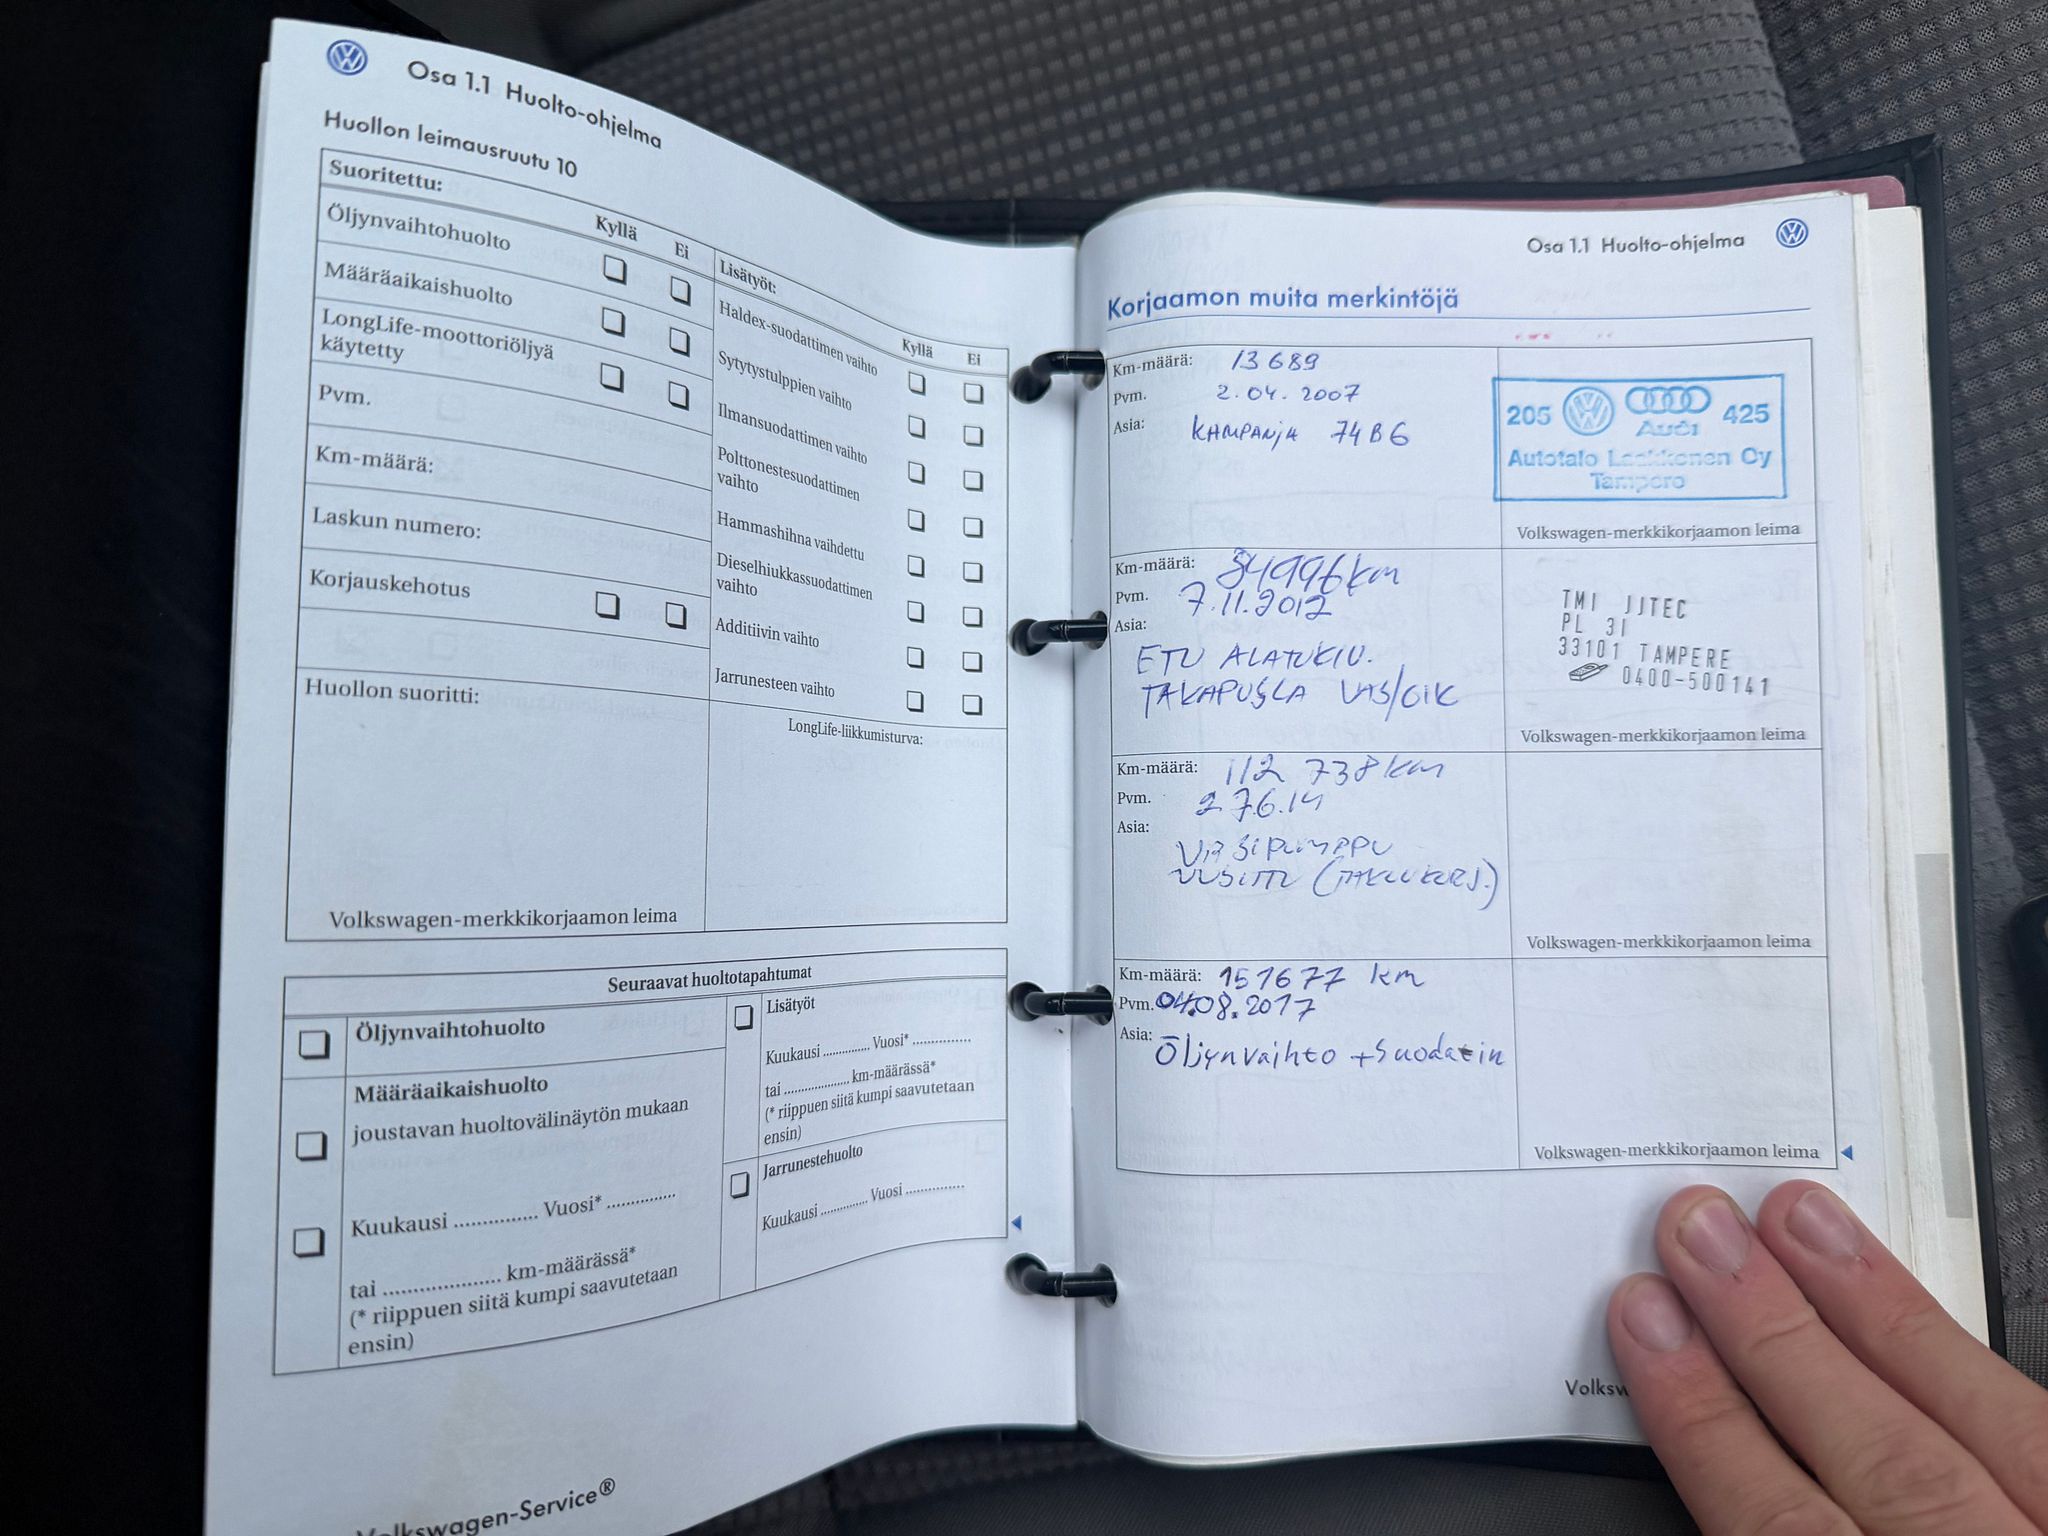 Osa 1.1 Huolto-ohjelma
Huollon leimausruutu 10
Suoritettu:
Kyllä Ei
Öljynvaihtohuolto
Määräaikaishuolto
LongLife-moottoriöljyä
käytetty
Pvm.
Km-määrä:
Laskun numero:
Korjauskehotus
Huollon suoritti:
Volkswagen-merkkikorjaamon leima
Lisätyöt:
Kyllä Ei
Haldex-suodattimen vaihto
Sytytystulppien vaihto
Ilmansuodattimen vaihto
Polttonestesuodattimen
vaihto
Hammashihna vaihdettu
Dieselhiukkassuodattimen
vaihto
Additiivin vaihto
Jarrunesteen vaihto
LongLife-liikkumisturva:
Seuraavat huoltotapahtumat
Öljynvaihtohuolto
Määräaikaishuolto
joustavan huoltovälinäytön mukaan
Kuukausi ............... Vuosi* ..............
tai ..................... km-määrässä*
(* riippuen siitä kumpi saavutetaan
ensin)
Lisätyöt
Kuukausi ............ Vuosi* ...............
tai .................... km-määrässä*
(* riippuen siitä kumpi saavutetaan
ensin)
Jarrunestehuolto
Kuukausi ............ Vuosi ...............
Volkswagen-Service®
Osa 1.1 Huolto-ohjelma
Korjaamon muita merkintöjä
Km-määrä: 13 689
Pvm. 2.04.2007
Asia: KAMPANJA 74B6
205 425
Audi
Autotalo Laakkonen Oy
Tampere
Volkswagen-merkkikorjaamon leima
Km-määrä: 84996 km
Pvm. 7.11.2012
Asia:
ETU ALATUKIV.
TAKAPUSLA VAS/OIK
TMI JJTEC
PL 31
33101 TAMPERE
0400-500141
Volkswagen-merkkikorjaamon leima
Km-määrä: 112 738 km
Pvm. 27.6.14
Asia:
VESIPUMPPU
UUSITTU (TAKUUKORJ.)
Volkswagen-merkkikorjaamon leima
Km-määrä: 151677 km
Pvm. 04.08.2017
Asia: Öljynvaihto + Suodatin
Volkswagen-merkkikorjaamon leima